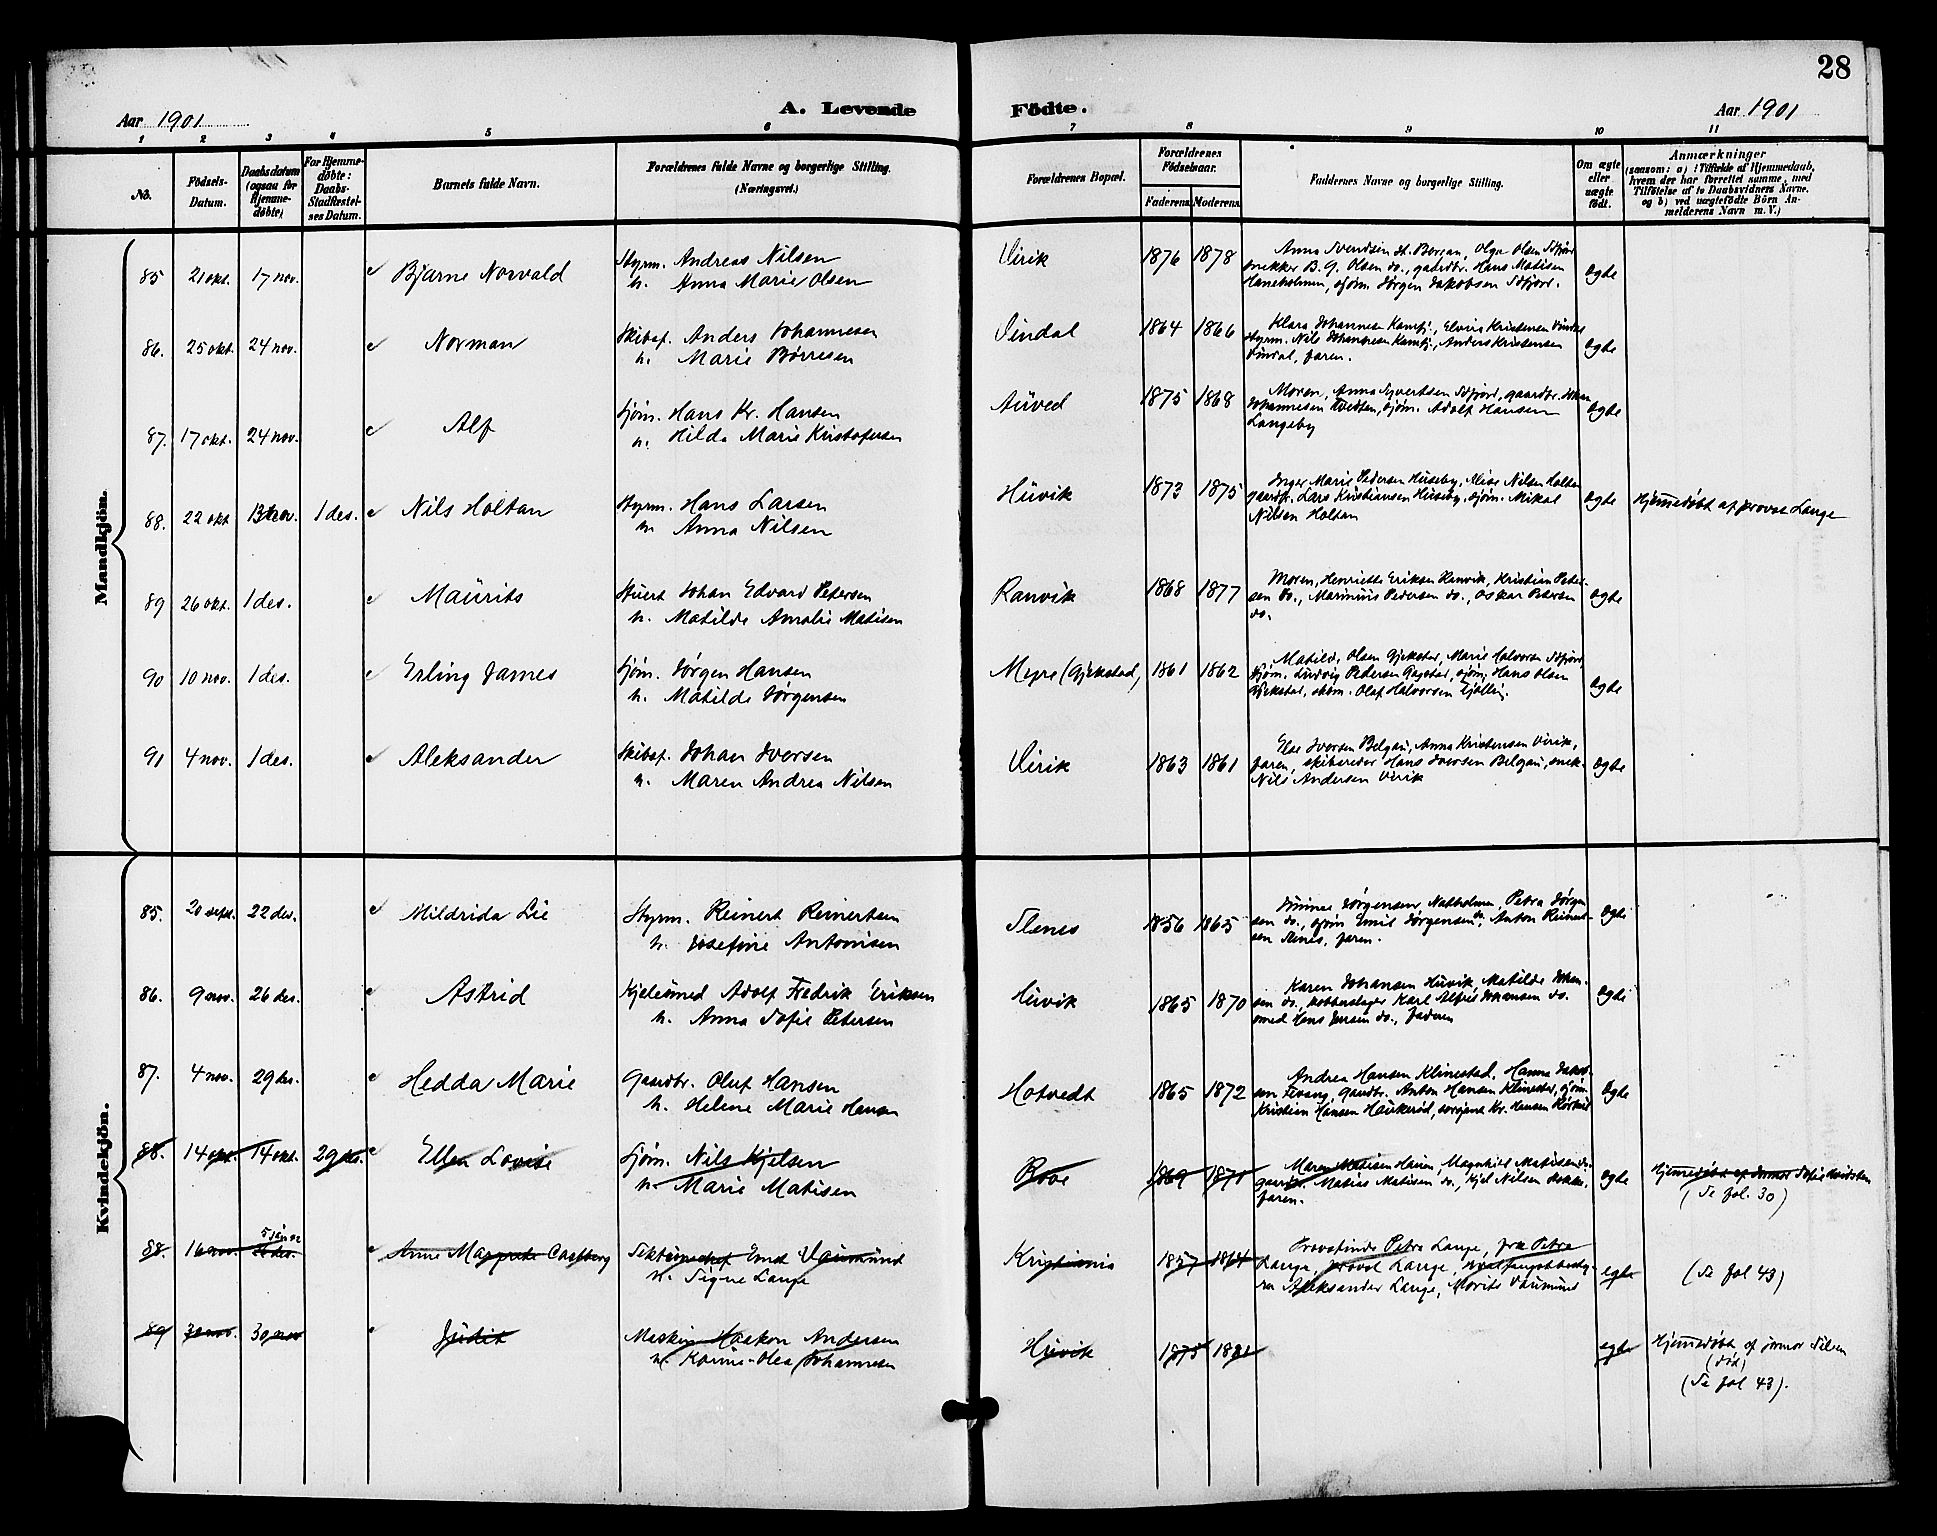 28
Aar 1901
A. Levende
Födte.
Aar 1901
1 2 3 4 5 6 7 8 9 10 11
No.
Födsels-
Datum.
Daabsdatum
(ogsaa for
Hjemme-
döbte)
For Hjemme-
döbte:
Daabs-
Stadfæstel-
ses Datum.
Barnets fulde Navn.
Forældrenes fulde Navne og borgerlige Stilling.
(Næringsvei.)
Forældrenes Bopæl.
Forældrenes
Födselsaar.
Faderens. Moderens.
Faddernes Navne og borgerlige Stilling.
Om ægte
eller
uægte
födt.
Anmærkninger
(saasom: a) i Tilfælde af Hjemmedaab,
hvem der har forrettet samme, med
Tilföielse af to Daabsvidners Navne.
og b) ved uægtefödte Börn An-
melderens Navn m. V.)
Mandkjön.
85 21 okt. 17 nov. Bjarne Norvald
Styrm. Andreas Nilsen
h. Anna Marie Olsen
Virik 1876 1878
Anna Svendsen St. Bergan, Olga Olsen Sdfjord
snekker B. G. Olsen do., gaardbr. Hans Matisen
Haneholmen, sjøm. Jørgen Jakobsen Sdfjord.
Ægte
86. 25 okt. 24 nov. Norman
Skibsf. Anders Johannesen
h. Marie Børresen
Vindal 1864 1866
Klara Johannesen Kamfj., Elvira Kristensen Vindal
styrm. Nils Johannesen Kamfj., Anders Kristensen
Vindal, faren.
Ægte
87. 17 okt. 24 nov. Alf
Sjøm. Hans Kr. Hansen
h. Hilda Marie Kristofersen
Auved 1875 1868
Moren, Anna Syvertsen Sdfjord, gaardbr. Johan
Johannesen Tvedten, sjøm. Adolf Hansen
Langeby
Ægte
88. 22 okt 13 nov. 1 des. Nils Holtan
Styrm. Hans Larsen
h. Anna Nilsen
Huvik 1873 1875
Inger Marie Pedersen Huseby, Alise Nilsen Holtan
gaardbr. Lars Kristiansen Huseby, sjøm. Mikal
Nilsen Holtan
Ægte
Hjemmedøbt af provst Lange
89 26 okt. 1 des. Mauritz
Stuert Johan Edvard Petersen
h. Matilde Amalie Matisen
Ranvik 1868 1877
Moren, Henriette Eriksen Ranvik, Kristian Peter-
sen do., Marinius Pedersen do., Oskar Petersen
do.
Ægte
90 10 nov. 1 des. Erling James
Sjøm. Jørgen Hansen
h. Matilde Jørgensen
Mypre (Gjekstad) 1861 1862
Matilde Olsen Gjekstad, Marie Halvorsen Sdfjord,
sjøm. Ludvig Pedersen Gogstad, sjøm. Hans Olsen
Gjekstad, skom. Olaf Halvorsen Tjølling.
Ægte
91 4 nov. 1 des. Aleksander
Skibsf. Johan Iversen
h. Maren Andrea Nilsen
Virik 1863 1861
Else Iversen Belgau, Anna Kristensen Virik,
faren, skibsreder Hans Iversen Belgau, snek.
Nils Andersen Virik
Ægte
Kvindekjön.
85. 20 sept. 22 des. Mildrida Lie
Styrm. Reinert Reinertsen
h. Josefine Antonisen
Stenes 1856 1865
Jørgensen Natholmen, Petra Jørgen
sen do., sjøm Emil Jørgensen do., Anton Reinert-
sen Stenes, faren.
Ægte
86. 9 nov. 26 des. Astrid
Kjelesmed Adolf Fredrik Eriksen
h. Anna Sofie Petersen
Huvik 1865 1870
Karen Johansen Huvik, Matilde Johan-
sen do, kobberslager Karl Alfred Johansen do.
smed Hans Jensen do., Faderen
Ægte
87. 4 nov. 29 des. Hedda Marie
Gaardbr. Oluf Hansen
h. Helene Marie Hansen
Hotvedt 1865 1872
Andrea Hansen Klinestad, Hanna Jakob-
sen Fevang, gaardbr. Anton Hansen Klinestad, sjøm.
Kristian Hansen Haukerød, sergent Kr. Hansen
Ægte
88. 14 okt. 14 okt. 29 des. Ellen Lovise
Sjøm. Nils Kjelsen
h. Marie Matisen
Rove 1869 1871
Maren Matisen Hauen, Magnhild Matisen do.
gaardbr. Matias Matisen do., Kjel Nilsen
faren.
Ægte
Hjemmedøbt af Jormor Sofie Kvidsten
(Se fol. 30)
88. 16 nov. 26 des. 5 jan 02 Anne Margrete Castberg
Sektionschef Emil Vaumund
h. Signe Lange
Kristiania 1857 1864
Provstinde Petra Lange, frk Petra
Lange, provst Lange,
Aleksander Lange, Morits Vaumund
ægte
(Se fol 43)
89 30 nov. 30 nov Judit
Maskin Haakon Andersen
h. Karine Olea Johannesen
Huvik 1875 1881
ægte
Hjemmedøbt af jormor Nilsen
(død)
(Se fol 43).